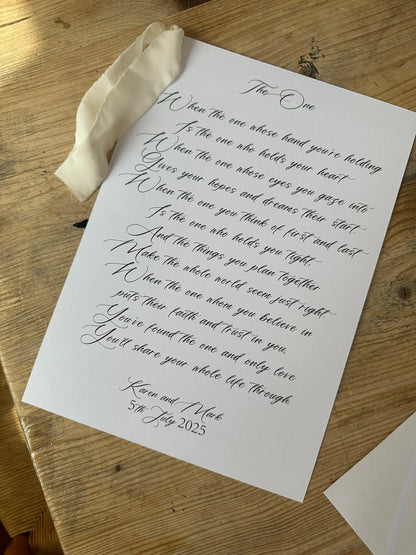 The One
When the one whose hand you're holding
Is the one who holds your heart
When the one whose eyes you gaze into
Gives your hopes and dreams their start
When the one you think of first and last
Is the one who holds you tight
And the things you plan together
Make the whole world seem just right
When the one whom you believe in
puts their faith and trust in you,
You've found the one and only love
You'll share your whole life through.
Karen and Mark
5th July 2025